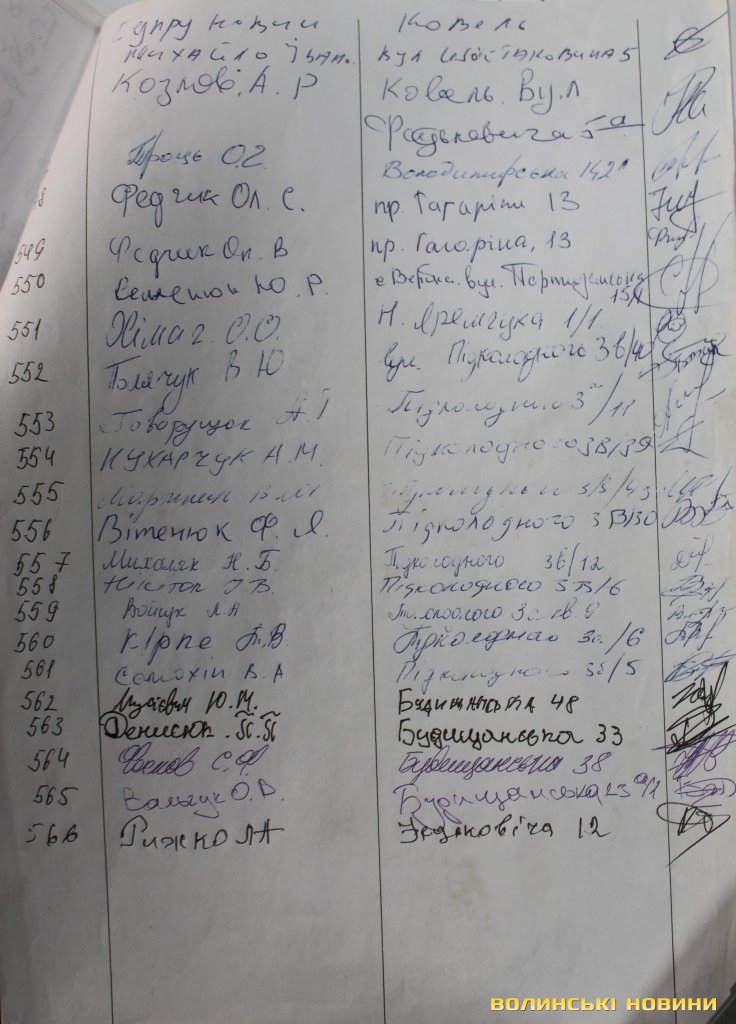 Ковель
Михайло Іван. вул Шостаковича 5
Козлові. А. Р Ковель. Вул
Федьковича 5а
Троць О.Г. Володимирська 142
Федчик Ол. С. пр. Гагаріна 13
549 Федчик Ол. В пр. Гагаріна, 13
550 Семенюк Ю. Р. с Вербка. вул. Партизанська
15
551 Хімач О.О. Н. Яремчука 1/1
552 Полячук В Ю вул. Підколодного 3в/4
553 Говорущак А. І Підколодного 3 /11
554 КУХАРЧУК А.М. Підколодного 3В/39
555 3В/43
556 Вітенюк Ф. Я. Підколодного 3 В/30
557 Михаляк Н. Б. Підколодного 3в/12
558 Підколодного 3В/6
559 Войчук Л А 3а кв. 9
560 Кірпе Т.В. Підколодного 3а/6
561 Самохін В. А Підколодного 3б/5
562 Ю. М. Будищанська 48
563 Денисюк Будищанська 33
564 С.Ф Будищанська 38
565 О. В. Будищанська 23
566 Рижко ЛА 12
ВОЛИНСЬКІ НОВИНИ